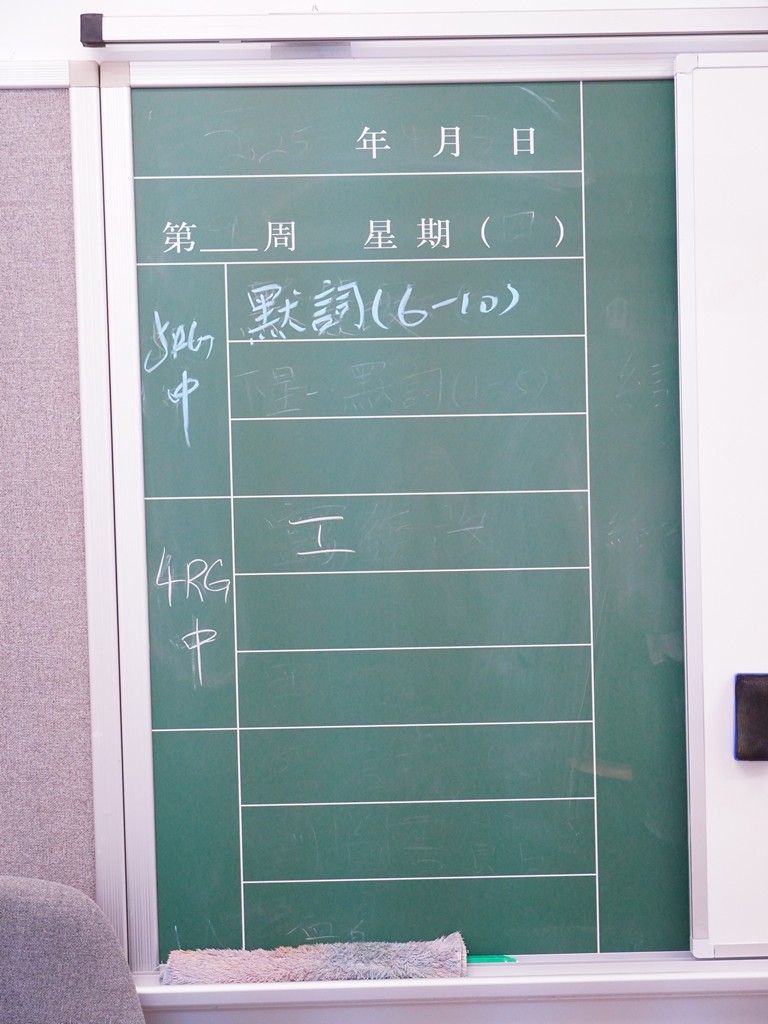 年 月 日
第___周 星期（ ）
5RG
中
默詞(6-10)
4RG
中
工